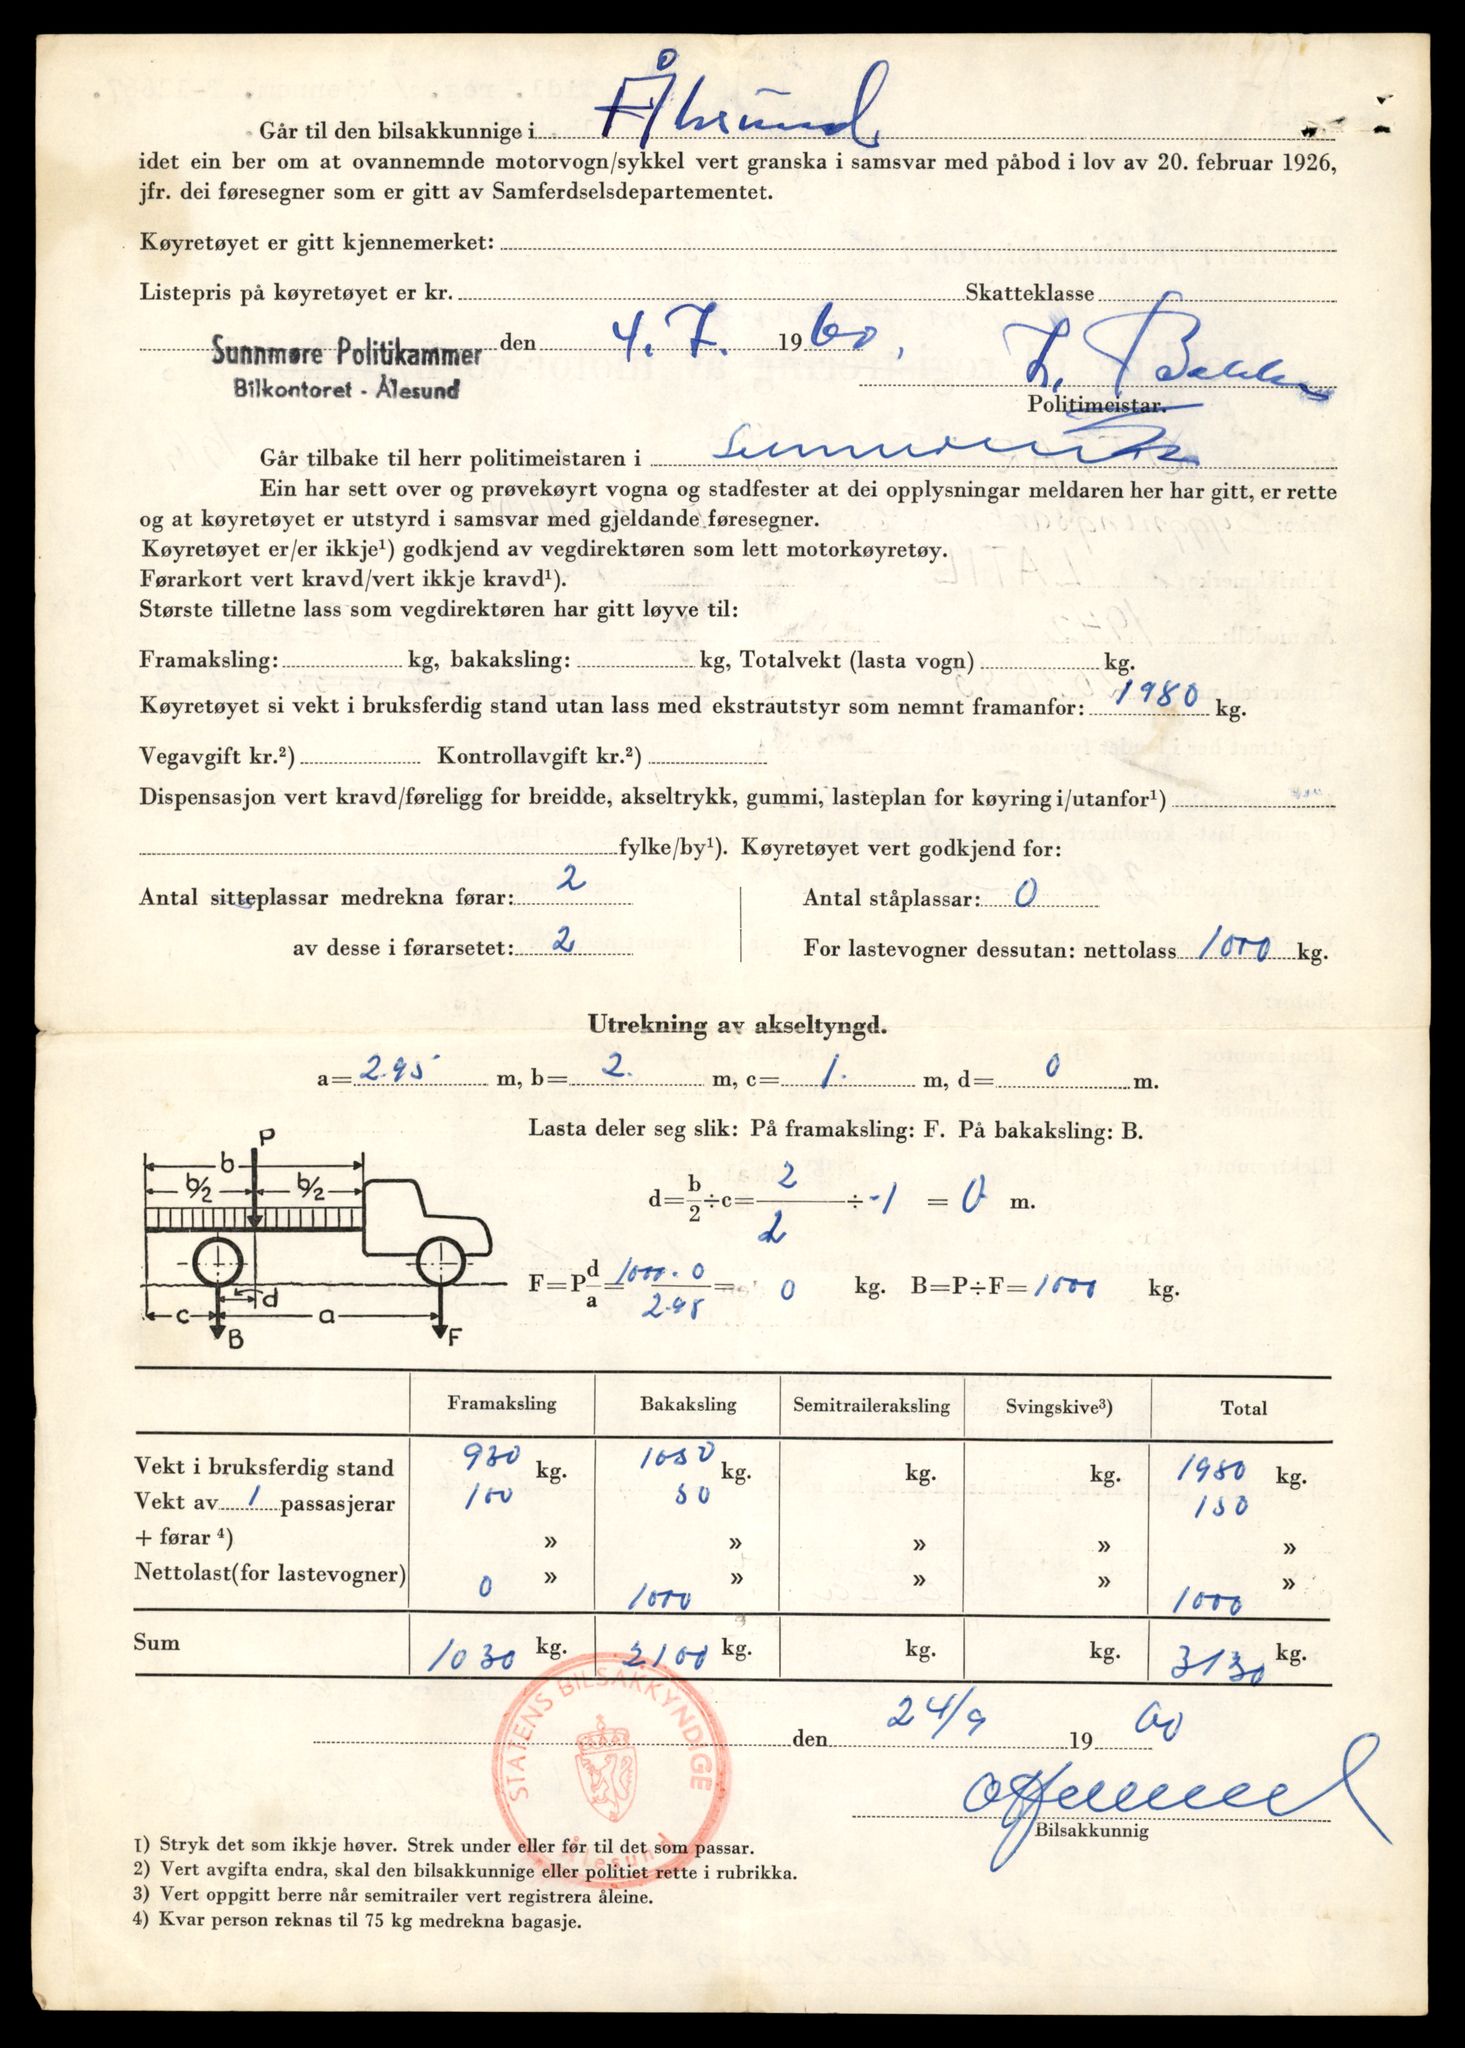 Går til den bilsakkunnige i Ålesund
idet ein ber om at ovannemnde motorvogn/sykkel vert granska i samsvar med påbod i lov av 20. februar 1926,
jfr. dei føresegner som er gitt av Samferdselsdepartementet.
Køyretøyet er gitt kjennemerket:
Listepris på køyretøyet er kr. Skatteklasse
Sunnmøre Politikammer den 4. 7. 1960.
Bilkontoret - Ålesund
Politimeistar.
Går tilbake til herr politimeistaren i Sunnmøre
Ein har sett over og prøvekøyrt vogna og stadfester at dei opplysningar meldaren her har gitt, er rette
og at køyretøyet er utstyrd i samsvar med gjeldande føresegner.
Køyretøyet er/er ikkje¹) godkjend av vegdirektøren som lett motorkøyretøy.
Førarkort vert kravd/vert ikkje kravd¹).
Største tilletne lass som vegdirektøren har gitt løyve til:
Framaksling: kg, bakaksling: kg, Totalvekt (lasta vogn) kg.
Køyretøyet si vekt i bruksferdig stand utan lass med ekstrautstyr som nemnt framanfor: 1980 kg.
Vegavgift kr.²) Kontrollavgift kr.²)
Dispensasjon vert kravd/føreligg for breidde, akseltrykk, gummi, lasteplan for køyring i/utanfor¹)
fylke/by¹). Køyretøyet vert godkjend for:
Antal sitteplassar medrekna førar: 2 Antal ståplassar: 0
av desse i førarsetet: 2 For lastevogner dessutan: nettolass 1000 kg.
Utrekning av akseltyngd.
a= 2.95 m, b= 2. m, c= 1. m, d= 0 m.
Lasta deler seg slik: På framaksling: F. På bakaksling: B.
P
b
b/2 b/2
d=b/2÷c= 2/2 ÷ -1 = 0 m.
F=P d/a= 1000 . 0/2.95 = 0 kg. B=P÷F= 1000 kg.
d
c a
B F
Framaksling Bakaksling Semitraileraksling Svingskive³) Total
Vekt i bruksferdig stand 930 kg. 1050 kg. kg. kg. 1980 kg.
Vekt av 1 passasjerar 100 50 150
+ førar ⁴) » » » » »
Nettolast(for lastevogner) 0 » 1000 » » » 1000 »
Sum 1030 kg. 2100 kg. kg. kg. 3130 kg.
den 24/9 1960
STATENS BILSAKKYNDIGE
Ålesund
Bilsakkunnig
1) Stryk det som ikkje høver. Strek under eller før til det som passar.
2) Vert avgifta endra, skal den bilsakkunnige eller politiet rette i rubrikka.
3) Vert oppgitt berre når semitrailer vert registrera åleine.
4) Kvar person reknas til 75 kg medrekna bagasje.